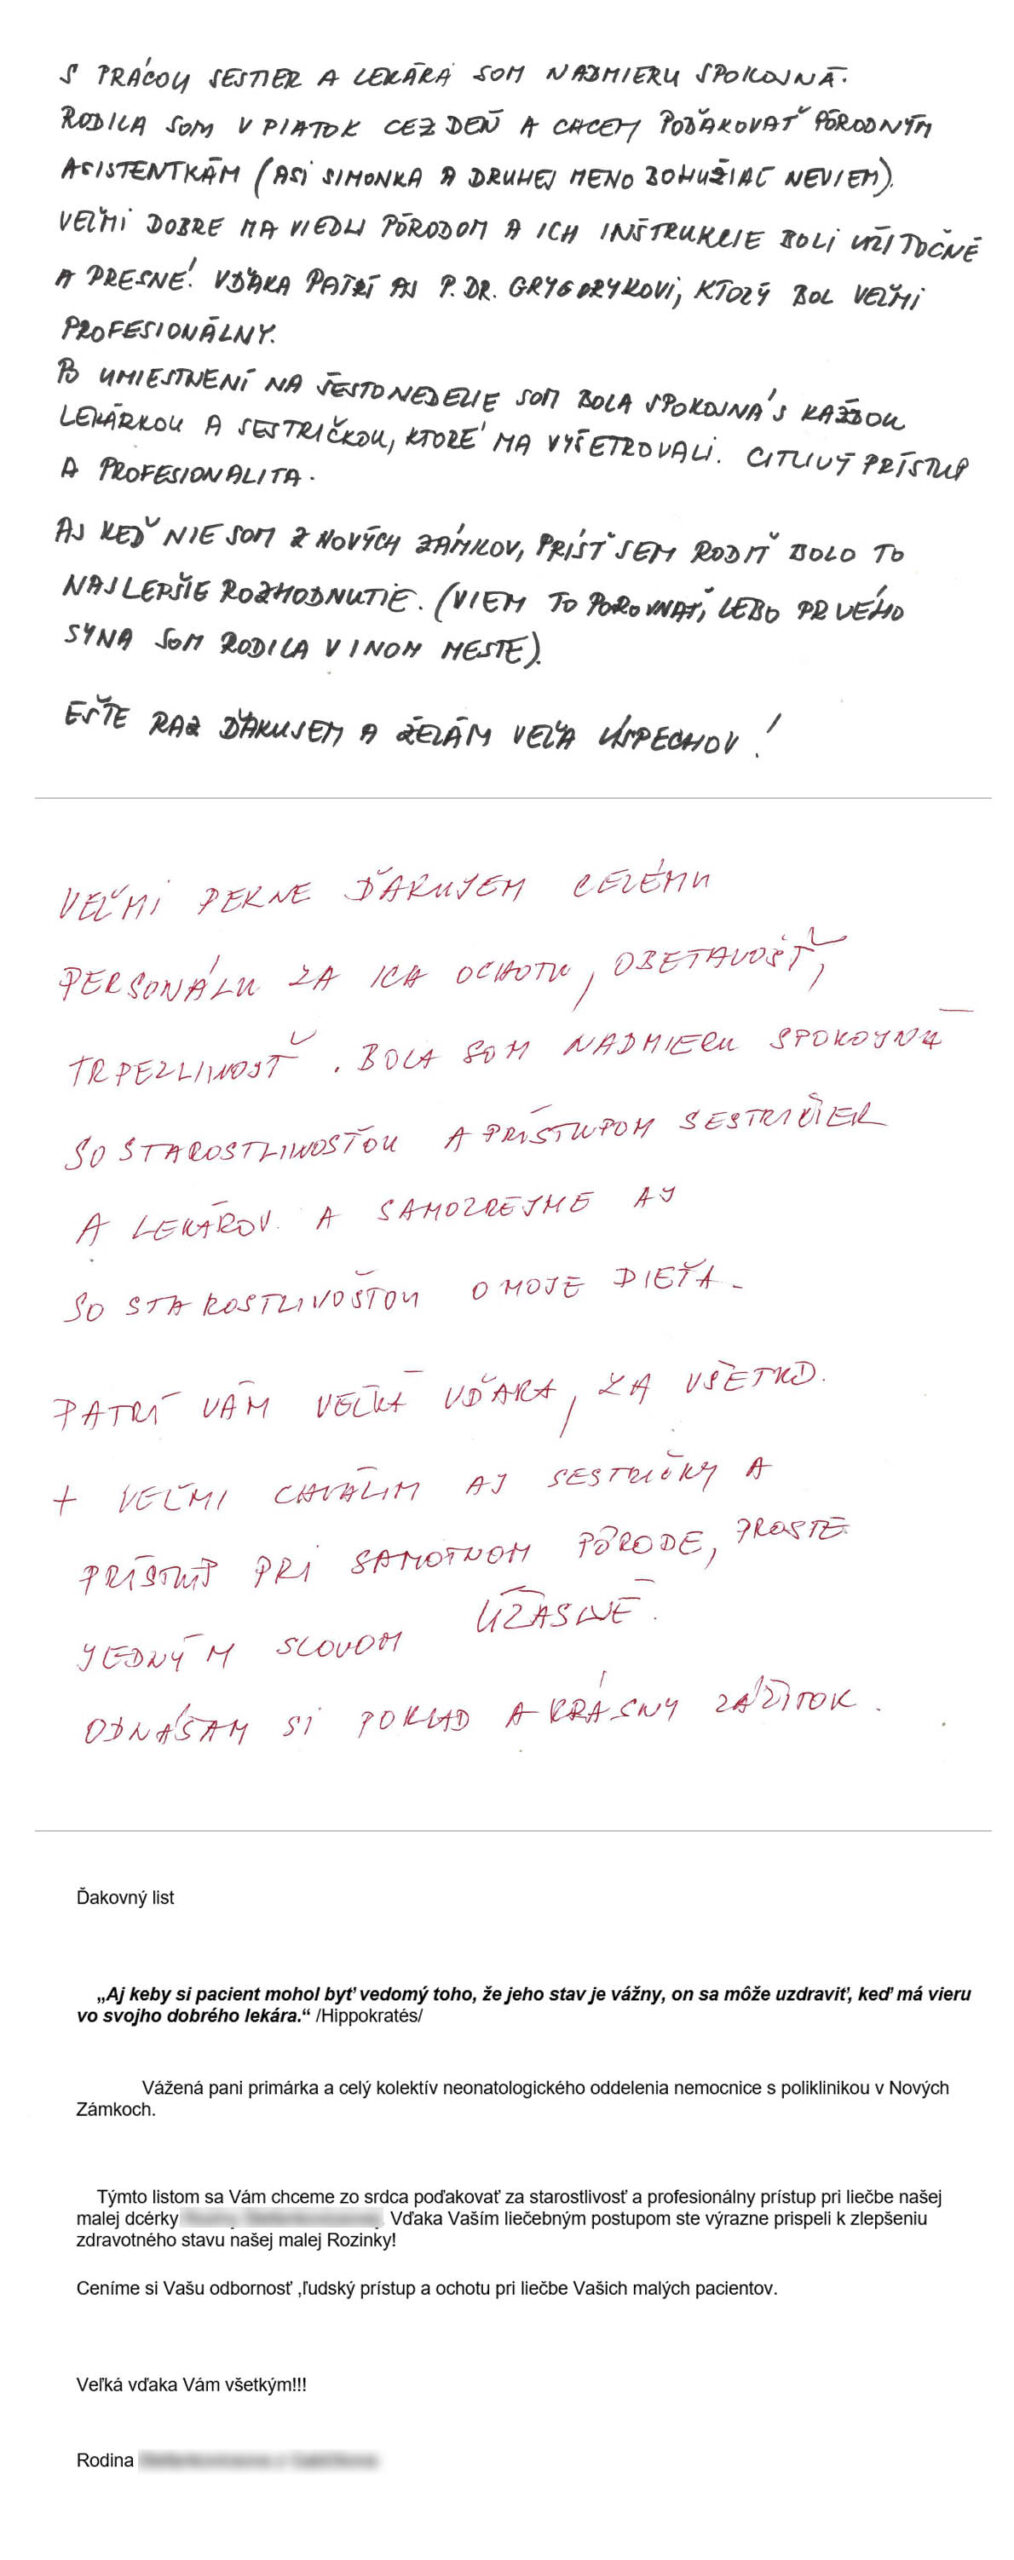 S PRÁCOU SESTIER A LEKÁRA SOM NADMIERU SPOKOJNÁ.
RODILA SOM V PIATOK CEZ DEŇ A CHCEM POĎAKOVAŤ PÔRODNÝM
ASISTENTKÁM (ASI SIMONKA A DRUHEJ MENO BOHUŽIAĽ NEVIEM).
VEĽMI DOBRE MA VIEDLI PÔRODOM A ICH INŠTRUKCIE BOLI UŽITOČNÉ
A PRESNÉ! VĎAKA PATRÍ AJ P. DR. GRYGORYKOVI, KTORÝ BOL VEĽMI
PROFESIONÁLNY.
PO UMIESTNENÍ NA ŠESTONEDELIE SOM BOLA SPOKOJNÁ S KAŽDOU
LEKÁRKOU A SESTRIČKOU, KTORÉ MA VYŠETROVALI. CITLIVÝ PRÍSTUP
A PROFESIONALITA.
AJ KEĎ NIE SOM Z NOVÝCH ZÁMKOV, PRÍSŤ SEM RODIŤ BOLO TO
NAJLEPŠIE ROZHODNUTIE. (VIEM TO POROVNAŤ, LEBO PRVÉHO
SYNA SOM RODILA V INOM MESTE).
EŠTE RAZ ĎAKUJEM A ŽELÁM VEĽA ÚSPECHOV!
VEĽMI PEKNE ĎAKUJEM CELÉMU
PERSONÁLU ZA ICH OCHOTU, OBETAVOSŤ,
TRPEZLIVOSŤ. BOLA SOM NADMIERU SPOKOJNÁ
SO STAROSTLIVOSŤOU A PRÍSTUPOM SESTRIČIEK
A LEKÁROV. A SAMOZREJME AJ
SO STAROSTLIVOŠTOU O MOJE DIEŤA.
PATRÍ VÁM VEĽKÁ VĎAKA, ZA VŠETKO.
+ VEĽMI CHVÁLIM AJ SESTRIČKY A
PRÍSTUP PRI SAMOTNOM PÔRODE, PROSTE
JEDNÝM SLOVOM ÚŽASNÉ.
ODNÁŠAM SI POKLAD A KRÁSNY ZÁŽITOK.
Ďakovný list
„Aj keby si pacient mohol byť vedomý toho, že jeho stav je vážny, on sa môže uzdraviť, keď má vieru
vo svojho dobrého lekára.“ /Hippokratés/
Vážená pani primárka a celý kolektív neonatologického oddelenia nemocnice s poliklinikou v Nových
Zámkoch.
Týmto listom sa Vám chceme zo srdca poďakovať za starostlivosť a profesionálny prístup pri liečbe našej
malej dcérky Vďaka Vaším liečebným postupom ste výrazne prispeli k zlepšeniu
zdravotného stavu našej malej Rozinky!
Ceníme si Vašu odbornosť ,ľudský prístup a ochotu pri liečbe Vašich malých pacientov.
Veľká vďaka Vám všetkým!!!
Rodina